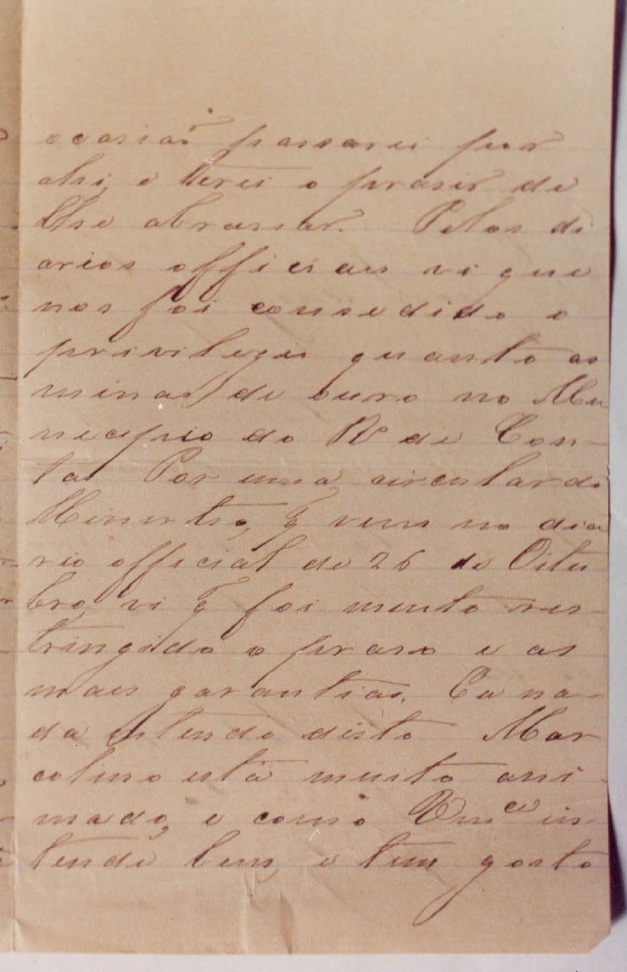 occasiaõ passarei por
ahi, e terei o praser de
lhe abrassar. Pelos di
arios officiaes vi que
nos foi consedido o
privilegio quanto as
minas de ouro no Mu
necipio do Rº de Con-
tas Por uma circular do
Ministro, q̃ veus no dia
rio official de 26 de Oitu
bro, vi q̃ foi muito res-
tringido o praso e as
mais garantias. Eu na-
da intendo disto Mar
colino está muito ani
mado, e como Vmce in-
tende bem, e tem gosto